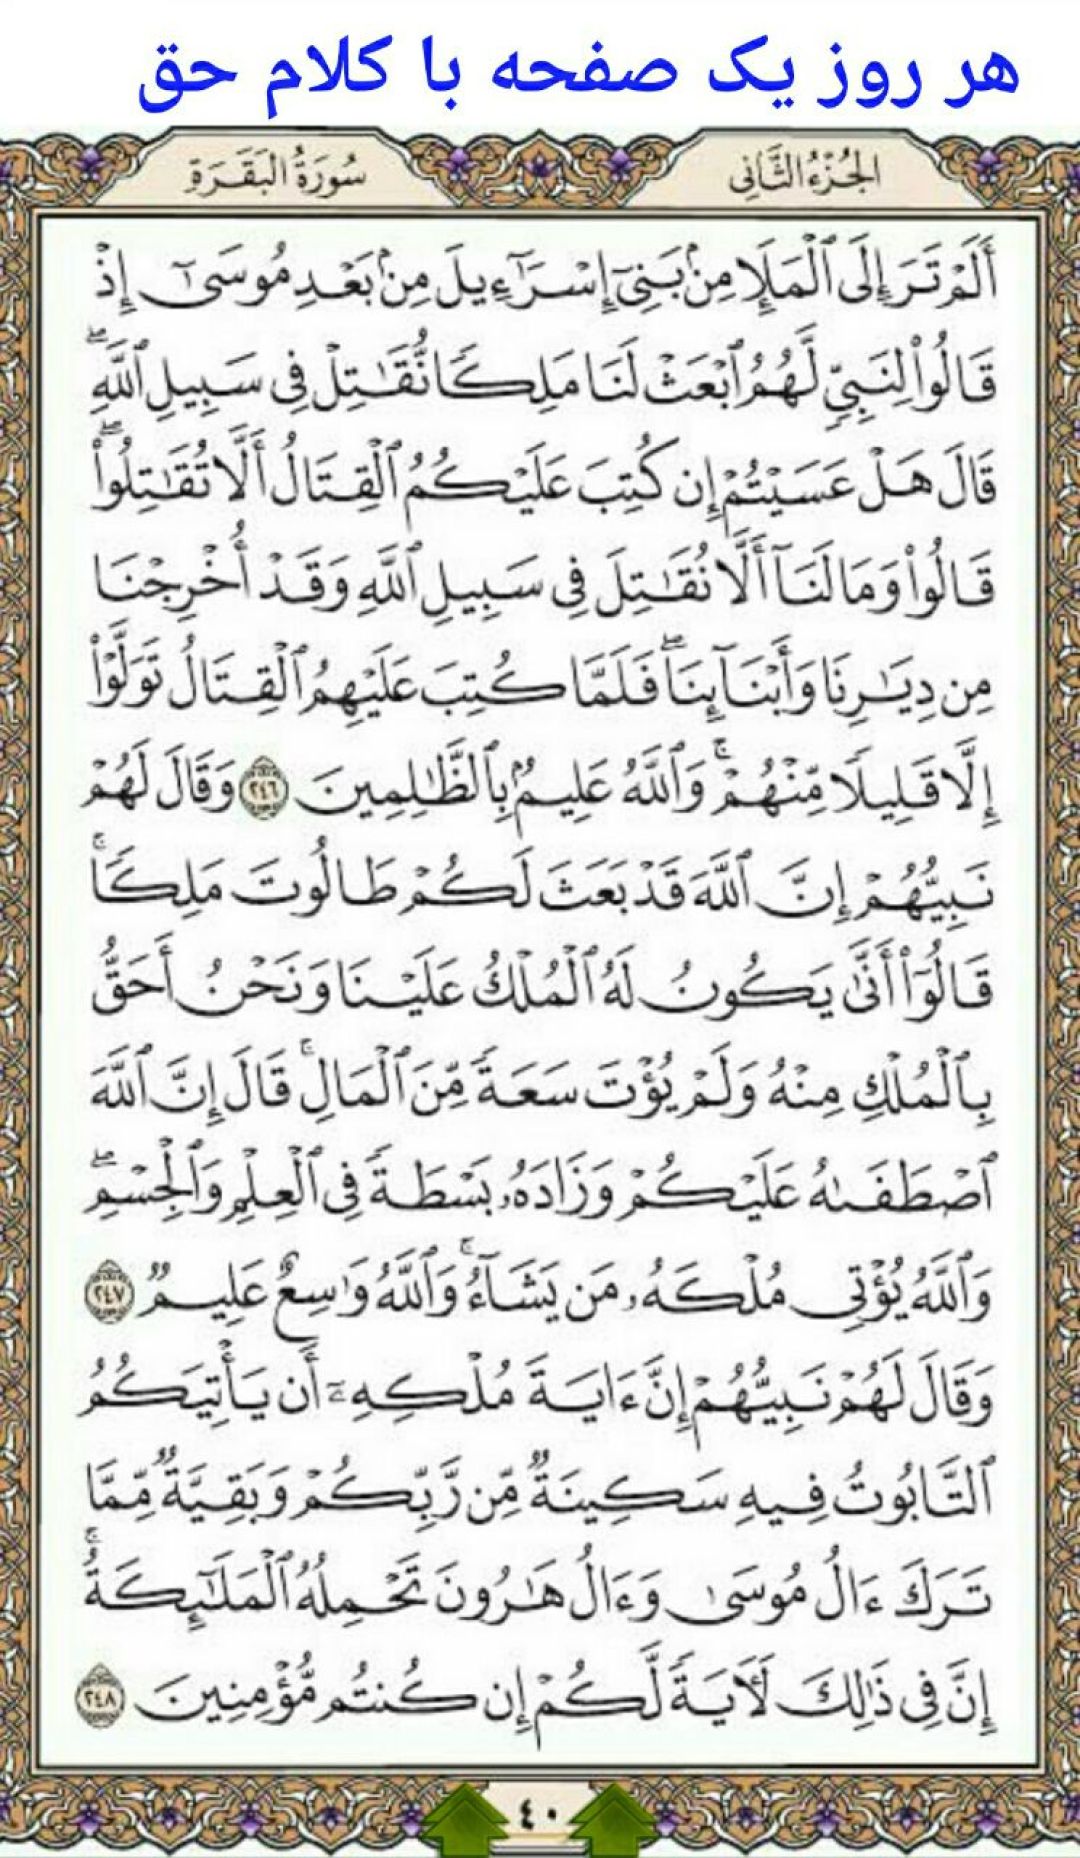 هر روز یک صفحه با کلام حق
الجُزْءُ الثَّانِي
سُورَةُ البَقَرَةِ
أَلَمْ تَرَ إِلَى ٱلْمَلَإِ مِنۢ بَنِىٓ إِسْرَٰٓءِيلَ مِنۢ بَعْدِ مُوسَىٰٓ إِذْ
قَالُوا۟ لِنَبِىٍّ لَّهُمُ ٱبْعَثْ لَنَا مَلِكًا نُّقَٰتِلْ فِى سَبِيلِ ٱللَّهِ ۖ
قَالَ هَلْ عَسَيْتُمْ إِن كُتِبَ عَلَيْكُمُ ٱلْقِتَالُ أَلَّا تُقَٰتِلُوا۟ ۖ
قَالُوا۟ وَمَا لَنَآ أَلَّا نُقَٰتِلَ فِى سَبِيلِ ٱللَّهِ وَقَدْ أُخْرِجْنَا
مِن دِيَٰرِنَا وَأَبْنَآئِنَا ۖ فَلَمَّا كُتِبَ عَلَيْهِمُ ٱلْقِتَالُ تَوَلَّوْا۟
إِلَّا قَلِيلًا مِّنْهُمْ ۗ وَٱللَّهُ عَلِيمٌۢ بِٱلظَّٰلِمِينَ ٢٤٦ وَقَالَ لَهُمْ
نَبِيُّهُمْ إِنَّ ٱللَّهَ قَدْ بَعَثَ لَكُمْ طَالُوتَ مَلِكًا ۚ
قَالُوٓا۟ أَنَّىٰ يَكُونُ لَهُ ٱلْمُلْكُ عَلَيْنَا وَنَحْنُ أَحَقُّ
بِٱلْمُلْكِ مِنْهُ وَلَمْ يُؤْتَ سَعَةً مِّنَ ٱلْمَالِ ۚ قَالَ إِنَّ ٱللَّهَ
ٱصْطَفَىٰهُ عَلَيْكُمْ وَزَادَهُۥ بَسْطَةً فِى ٱلْعِلْمِ وَٱلْجِسْمِ ۖ
وَٱللَّهُ يُؤْتِى مُلْكَهُۥ مَن يَشَآءُ ۚ وَٱللَّهُ وَٰسِعٌ عَلِيمٌ ٢٤٧
وَقَالَ لَهُمْ نَبِيُّهُمْ إِنَّ ءَايَةَ مُلْكِهِۦٓ أَن يَأْتِيَكُمُ
ٱلتَّابُوتُ فِيهِ سَكِينَةٌ مِّن رَّبِّكُمْ وَبَقِيَّةٌ مِّمَّا
تَرَكَ ءَالُ مُوسَىٰ وَءَالُ هَٰرُونَ تَحْمِلُهُ ٱلْمَلَٰٓئِكَةُ ۚ
إِنَّ فِى ذَٰلِكَ لَءَايَةً لَّكُمْ إِن كُنتُم مُّؤْمِنِينَ ٢٤٨
٤٠